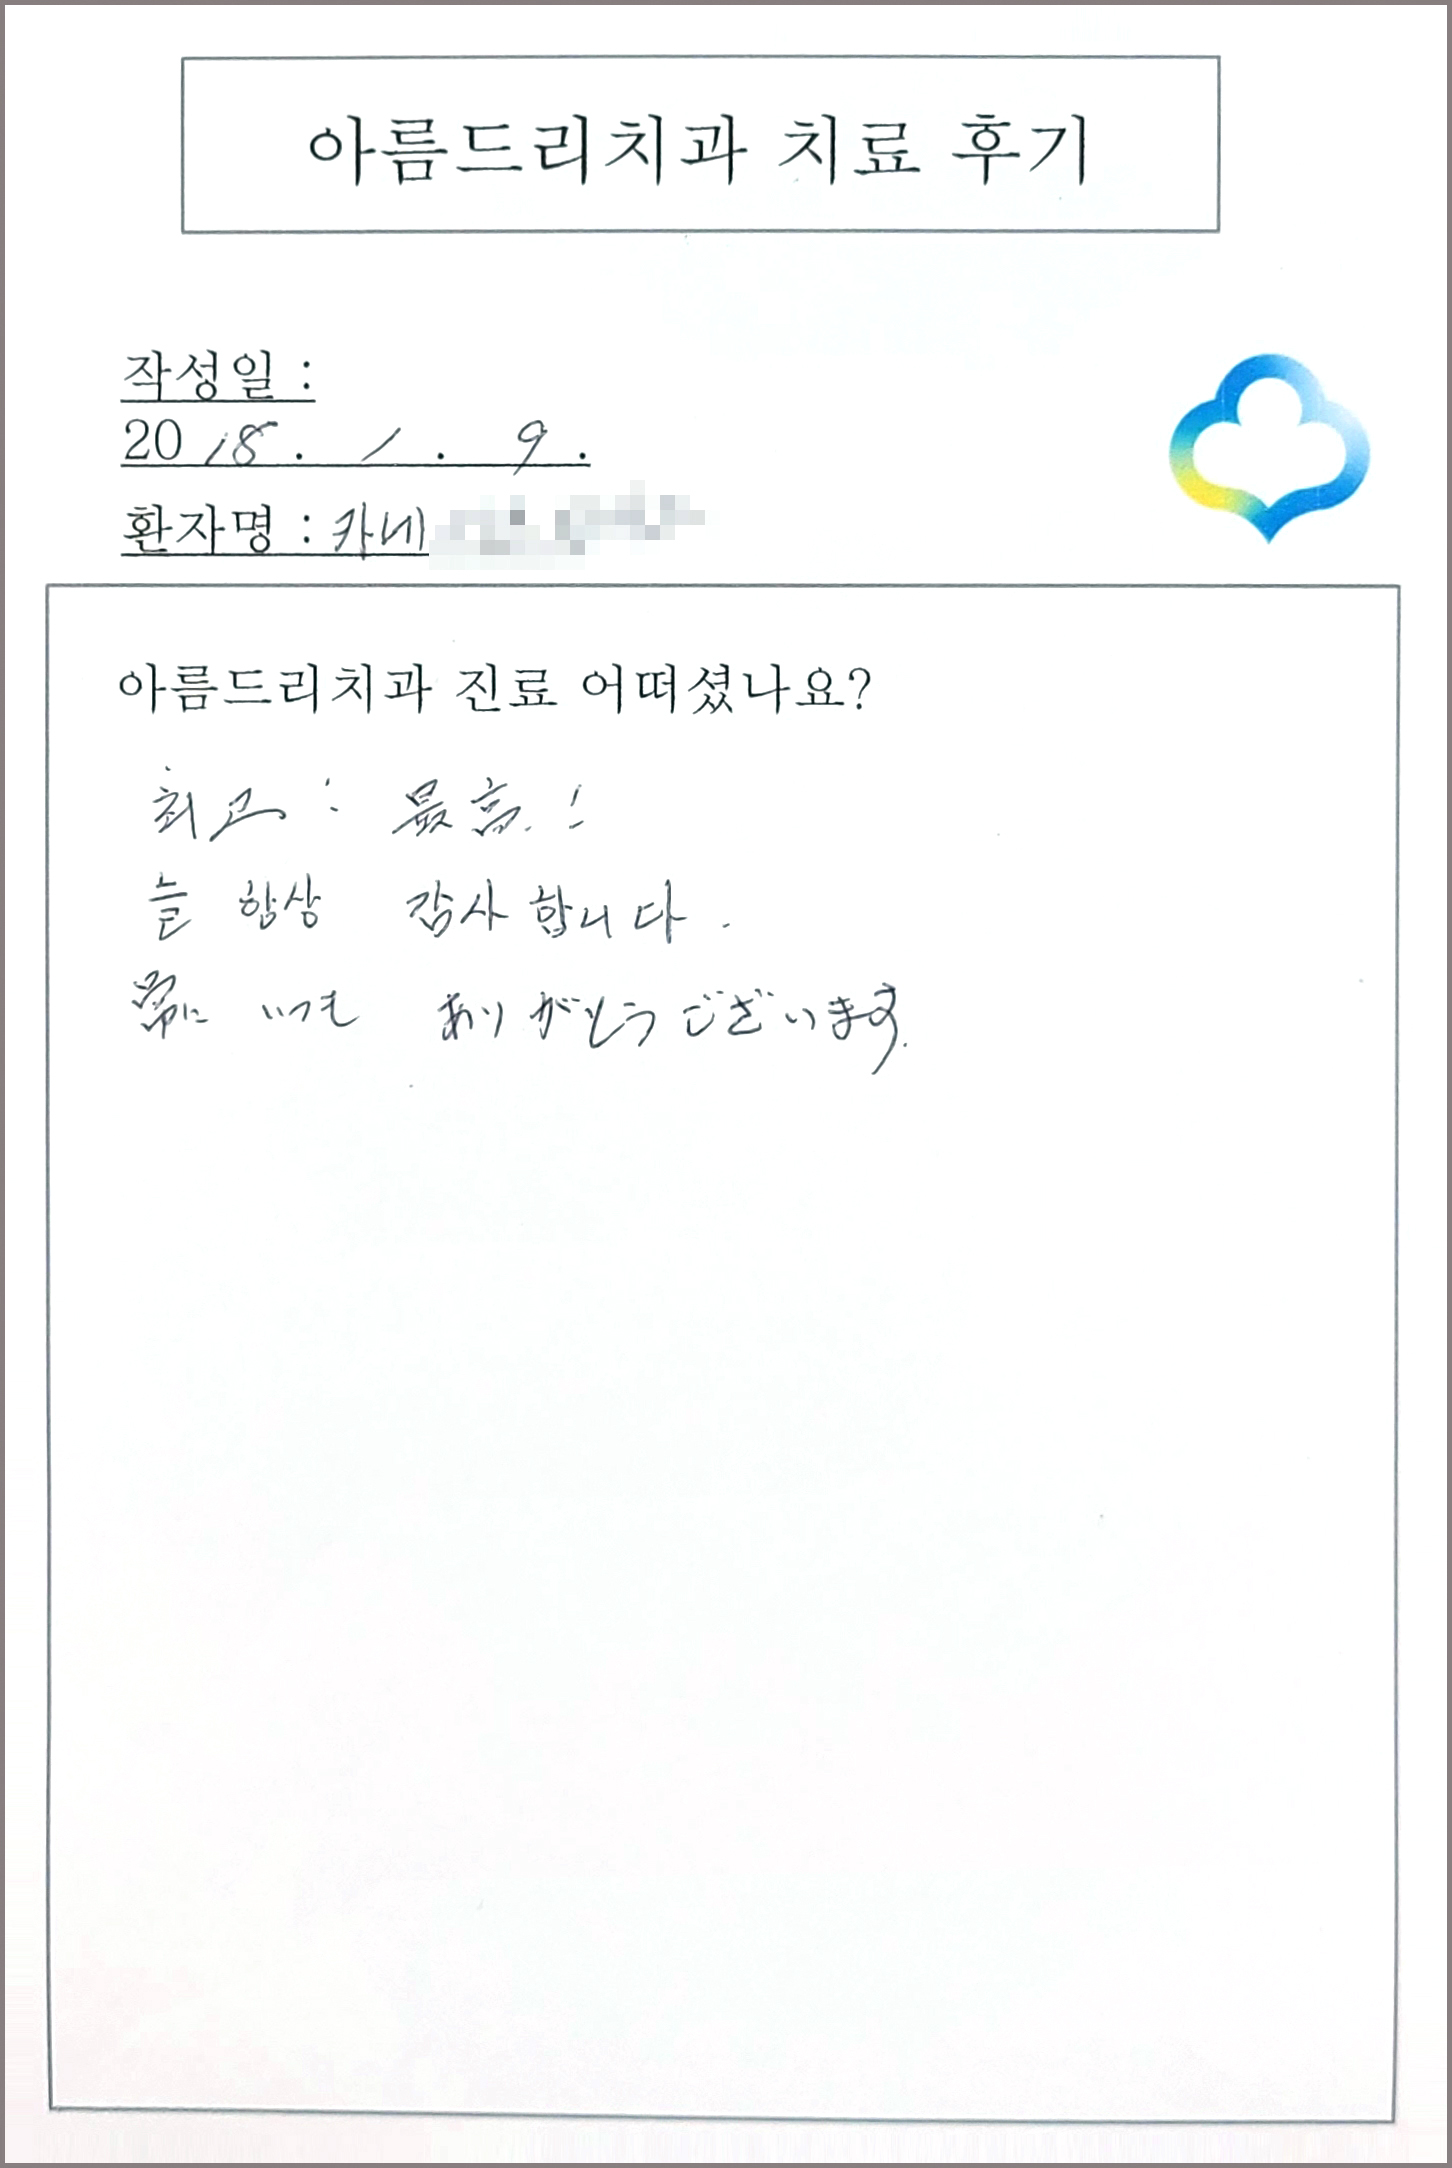 아름드리치과 치료 후기
작성일 :
2018 . 1 . 9 .
환자명 : 카네
아름드리치과 진료 어떠셨나요?
최고 : 最高 !
늘 항상 감사합니다 .
常に いつも ありがとうございます.